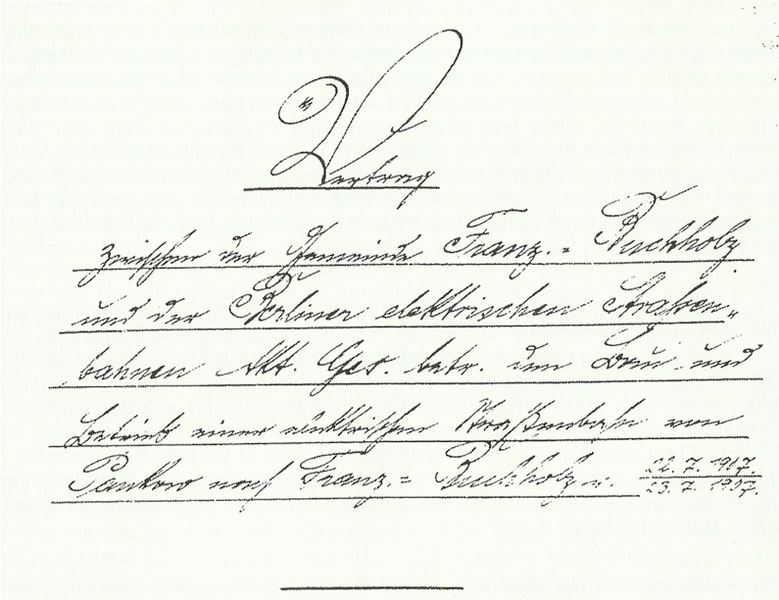 Vertrag
zwischen der Gemeinde Franz.=Buchholz
und der Berliner elektrischen Straßen„
bahnen Akt. Ges. betr. den Bau und
Betrieb einer elektrischen Straßenbahn von
Pankow nach Franz.=Buchholz v. 22.7.1907.
23.7.1907.